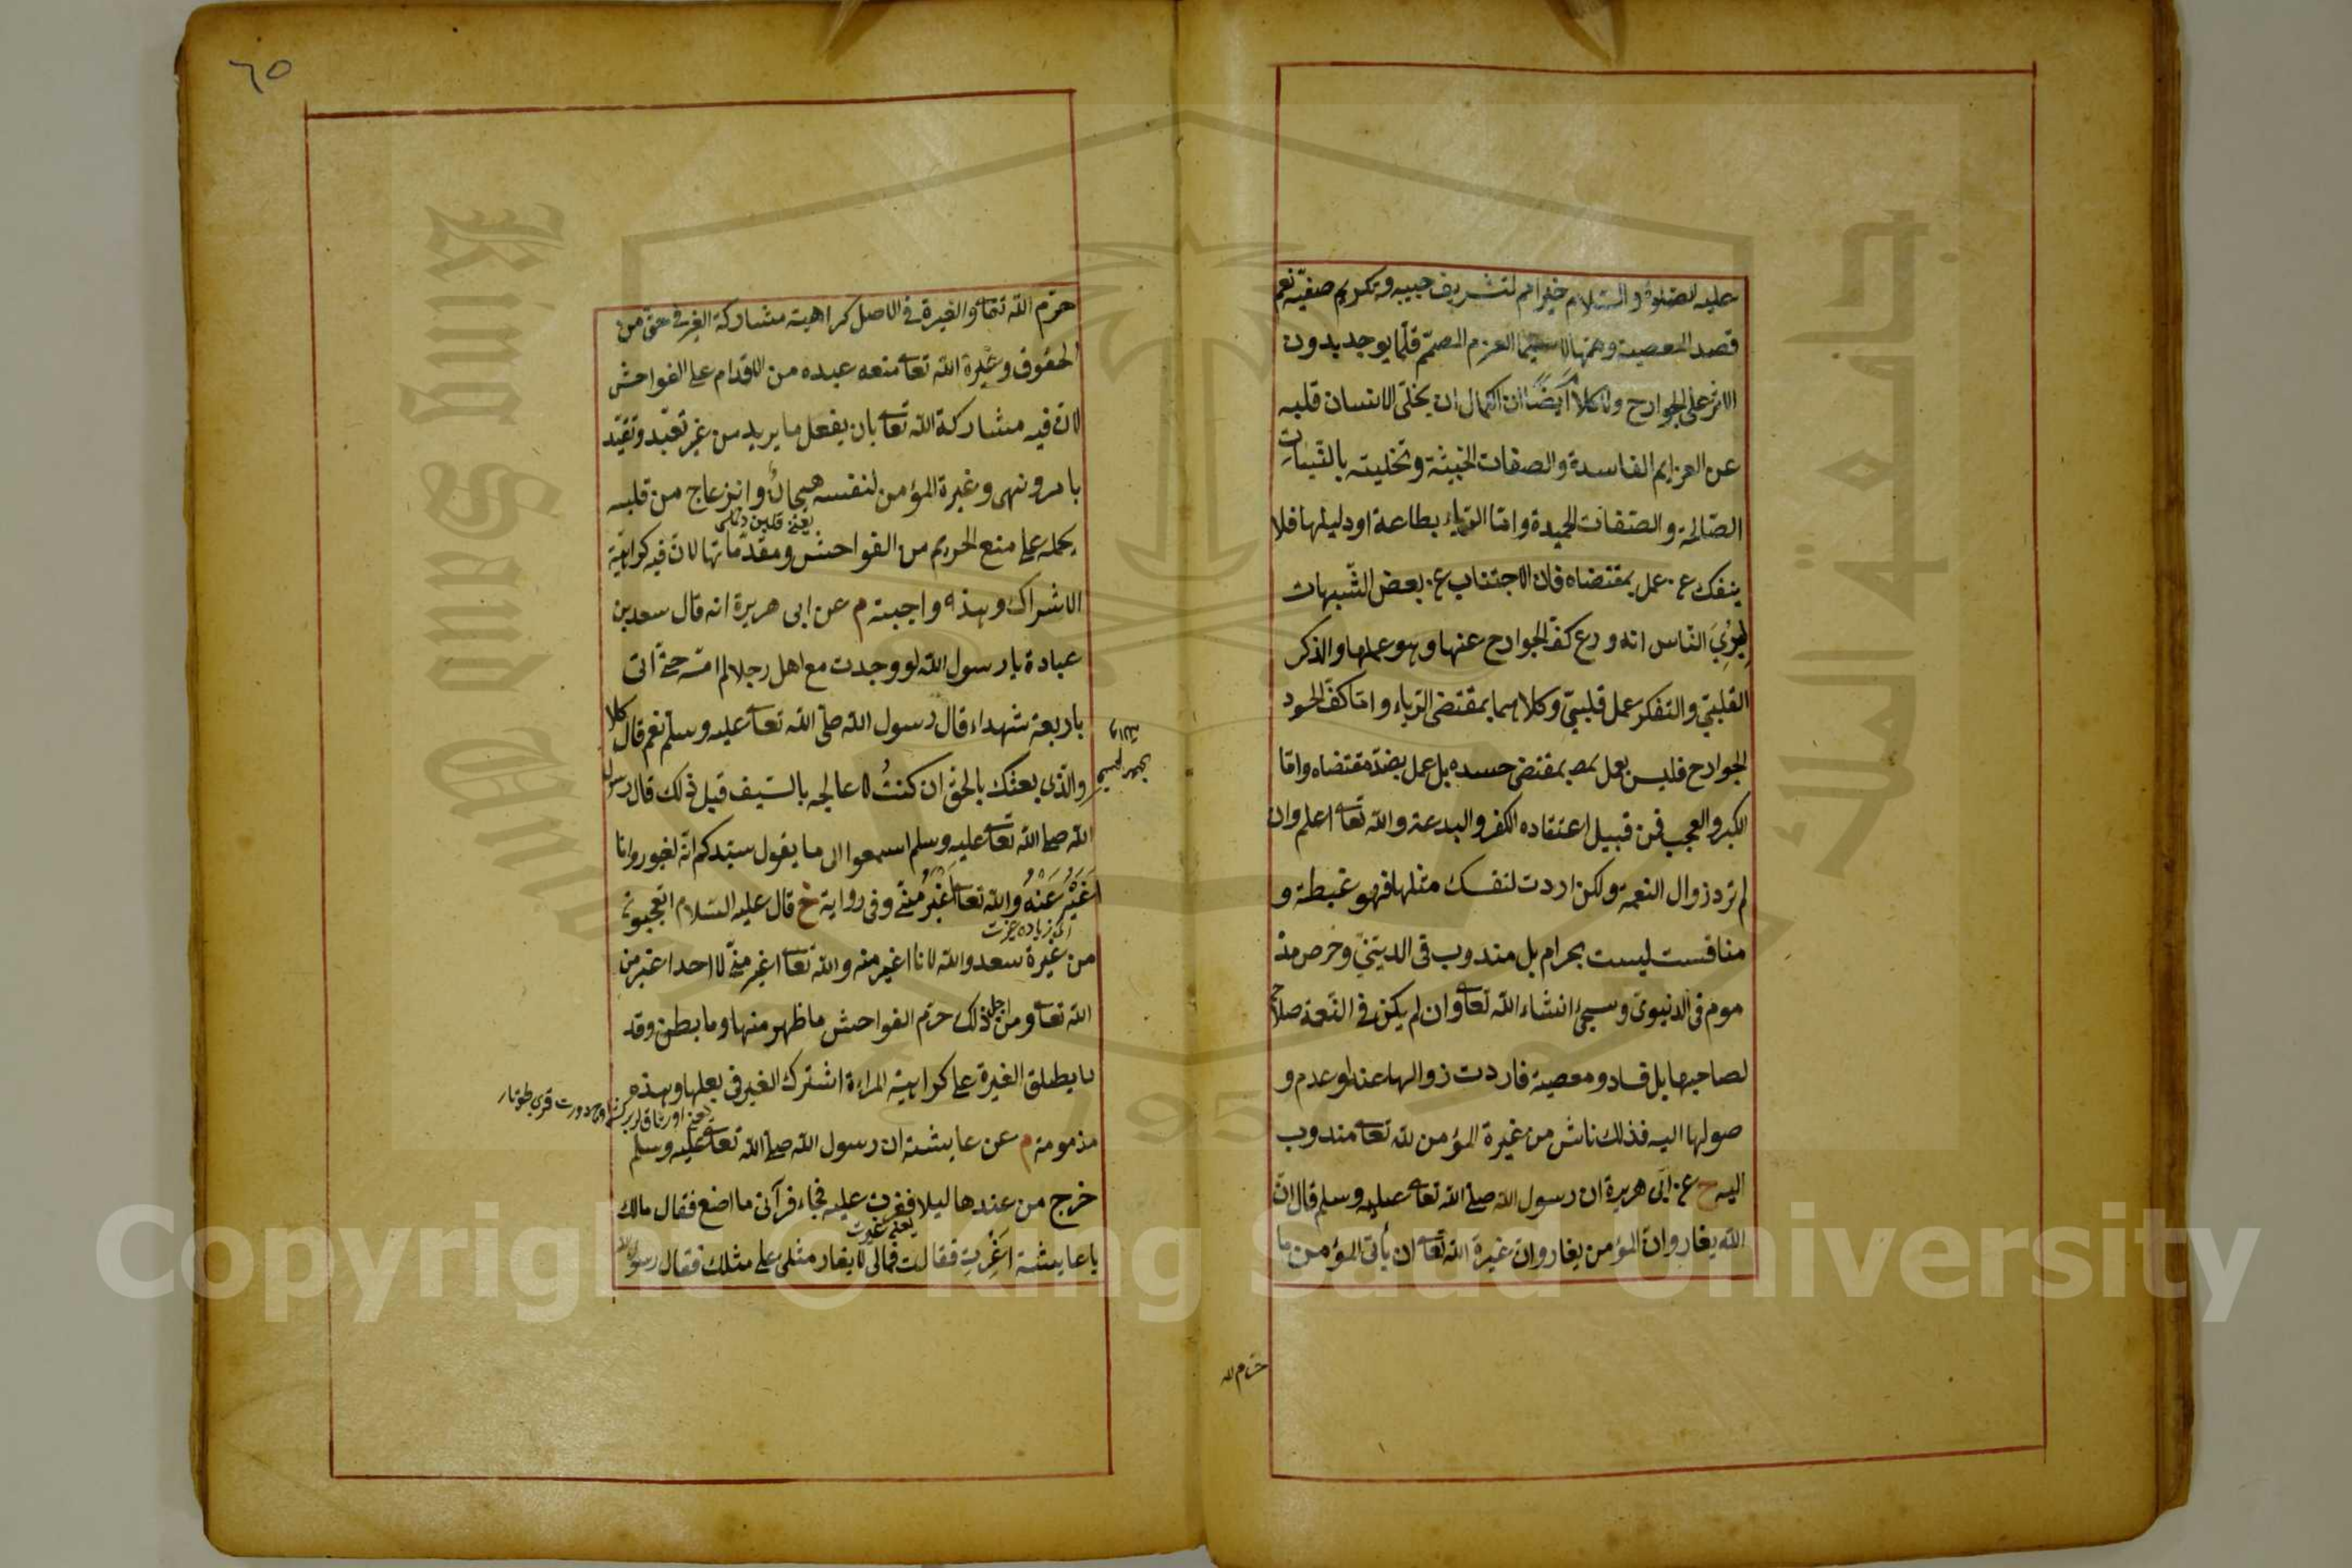 عليه الصلوة والسلام خيرامم لتشريف حبيبه وتكريم صفيّه نعم
قصد المعصية وهمّها لا سيما العزم المصمّم قلّما يوجد بدون
الاثر على الجوارح ولا كلام ايضًا ان الكمال ان يخلّى الانسان قلبه
عن العزايم الفاسدة والصفات الخبيثة وتحليته بالنيات
الصّالحة والصّفات الحميدة وامّا الرّياء بطاعة او دليلها فلا
ينفك عن عمل بمقتضاه فان الاجتناب عن بعض الشّبهات
لِيُرِيَ النّاس انه ورع كفّ الجوارح عنها وهو عملها والذكر
القلبيّ والتفكر عمل قلبيّ وكلاهما بمقتضى الرّياء وامّا كفّ الحسود
الجوارح فليس بعمل بمقتضى حسده بل عمل بضدّ مقتضاه وامّا
الكبر والعجب فمن قبيل اعتقاده الكفر والبدعة والله تعا اعلم وان
لم ترد زوال النعمة ولكن اردت لنفسك مثلها فهو غبطة و
منافست ليست بحرام بل مندوب فى الدينىّ وحرص مذ
موم فى الدنيوىّ وسيجئ انشاء الله تعا وان لم يكن فى النّعمة صلاح
لصاحبها بل فساد ومعصية فاردت زوالها عنه او عدم و
صولها اليه فذلك ناش من غيرة المؤمن لله تعا مندوب
اليه خ عن ابى هريرة ان رسول الله صلى الله تعا عليه وسلم قال انّ
الله يغار وانّ المؤمن يغار وانّ غيرة الله تعا ان يأتى المؤمن ما
حرّم الله
٦٥
حرّم الله تعا والغيرة فى الاصل كراهية مشاركة الغير فى حقّ من
الحقوق وغيرة الله تعا منعه عبده من الاقدام على الفواحش
لانّ فيه مشاركة الله تعا بان يفعل ما يريد من غير تعبّد وتقيّد
بامر ونهى وغيرة المؤمن لنفسه هيجان وانزعاج من قلبه
يحمله على منع الحريم من الفواحش ومقدّماتها لانّ فيه كراهيّة
الاشراك وهذه واجبة م عن ابى هريرة انه قال سعد بن
عبادة يا رسول الله لو وجدت مع اهلى رجلا لم امسّه حتّى آتى
باربعة شهداء قال رسول الله صلى الله تعا عليه وسلم نعم قال كلا
والّذى بعثك بالحقّ ان كنتُ لاعالجه بالسّيف قبل ذلك قال رسول
الله صلى الله تعا عليه وسلم اسمعوا الى ما يقول سيّدكم انّه لغيور وانا
اَغْيَرُ عَنْهُ والله تعا اَغْيَرُ منّى وفى رواية خ قال عليه السّلام اتعجبون
من غيرة سعد والله لانا اغير منه والله تعا اغير منّى لا احد اغير من
الله تعا ومن اجل ذلك حرّم الفواحش ما ظهر منها وما بطن وقد
يطلق الغيرة على كراهية المراءة اشتراك الغير فى بعلها وهذه
مذمومة م عن عايشة ان رسول الله صلى الله تعا عليه وسلم
خرج من عندها ليلا فغرت عليه فجاء فرآنى ما اصنع فقال مالك
يا عايشة اَغِرْتِ فقالت فمالى لا يغار مثلى على مثلك فقال رسول الله
Copyright © King Saud University